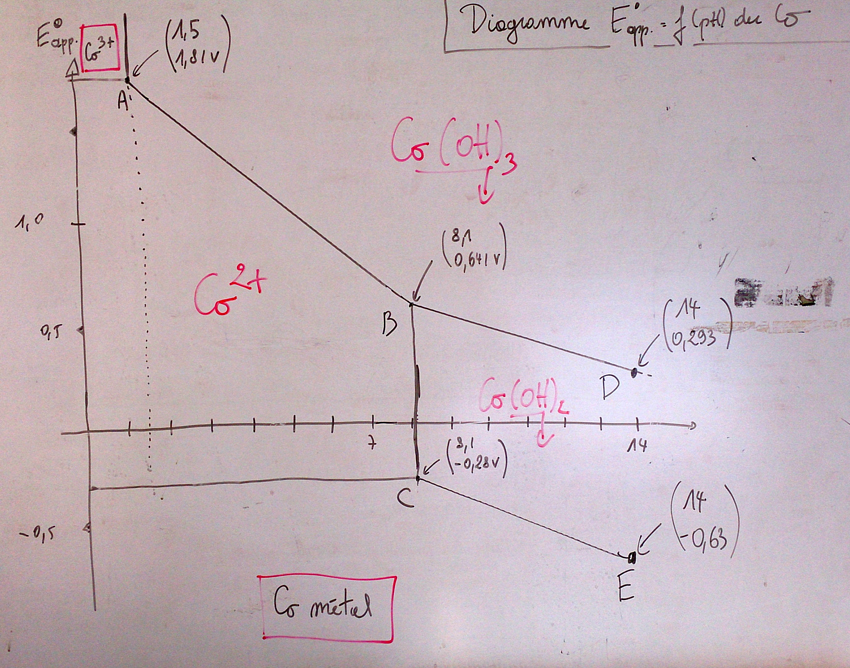 Diagramme E°app. = f(pH) du Co
E°app.
Co³⁺
(1,5
1,81V)
A
Co(OH)₃↓
1,0
(8,1
0,641V)
Co²⁺
B
(14
0,293)
0,5
D
Co(OH)₂↓
7
14
(8,1
-0,28V)
C
(14
-0,63)
-0,5
E
Co métal